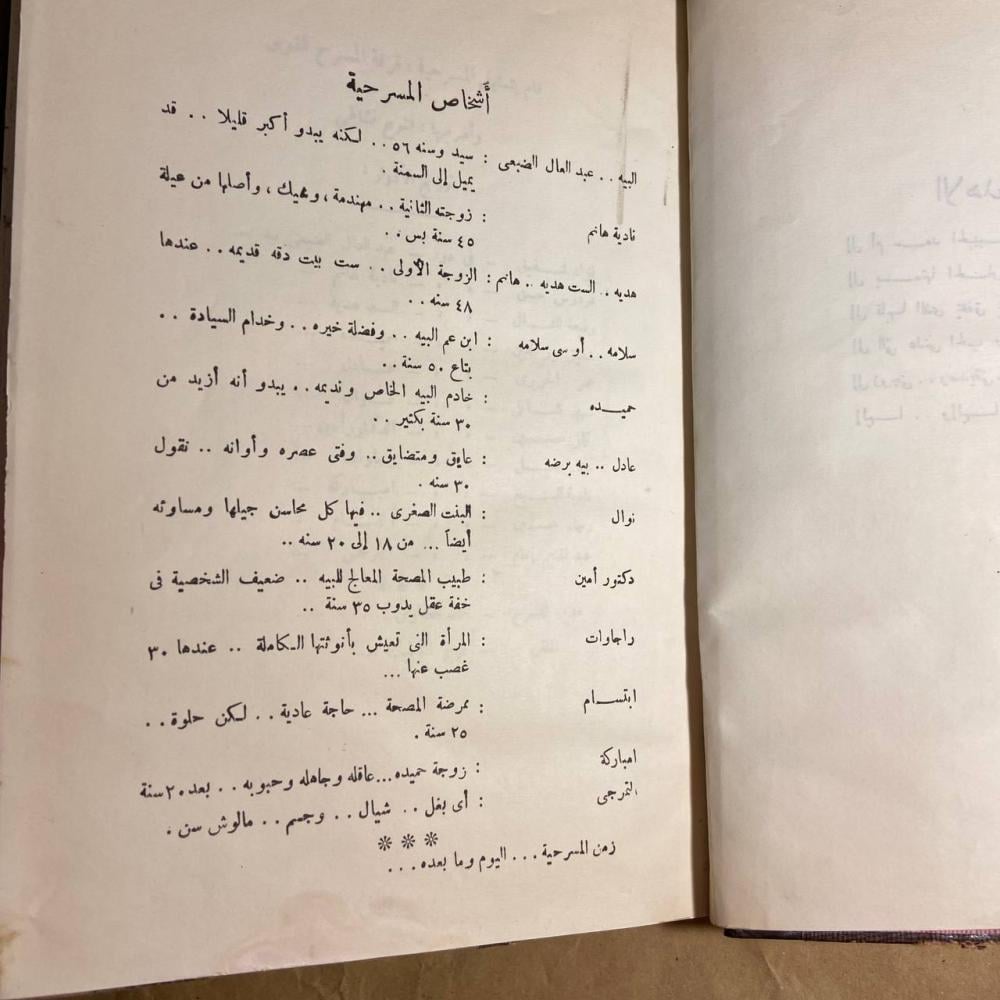 أشخاص المسرحية
البيه . . عبد العال الضبعى : سيد وسنه ٥٦ . . لكنه يبدو أكبر قليلا . . قد
يميل إلى السمنة .
نادية هانم : زوجته الثانية . . مهندمة ، وشيك ، وأصلها من عيلة
٤٥ سنة بس . .
هديه . . الست هديه . . هانم : الزوجة الأولى . . ست بيت دقه قديمه . . عندها
٤٨ سنه . .
سلامه . . أو سى سلامه : ابن عم البيه . . وفضلة خيره . . وخدام السيادة . .
بتاع ٥٠ سنة . .
حميده : خادم البيه الخاص ونديمه . . يبدو أنه أزيد من
٣٠ سنة بكتير . .
عادل . . بيه برضه : عايق ومتضايق . . وفتى عصره وأوانه . . نقول
٣٠ سنه .
نوال : البنت الصغرى . . فيها كل محاسن جيلها ومساوئه
أيضاً ... من ١٨ إلى ٢٠ سنه . .
دكتور أمين : طبيب المصحة المعالج للبيه . . ضعيف الشخصية فى
خفة عقل يدوب ٣٥ سنة . .
راجاوات : المرأة التى تعيش بأنوثتها الكاملة . . عندها ٣٠
غصب عنها ...
ابتسام : ممرضة المصحة ... حاجة عادية . . لكن حلوة . .
٢٥ سنة .
امباركة : زوجة حميده ... عاقله وجاهله وحبوبه . . بعده ٢٠ سنة
التمرجى : أى بغل . . شيال . . وجسم . . مالوش سن .
***
زمن المسرحية ... اليوم وما بعده ...